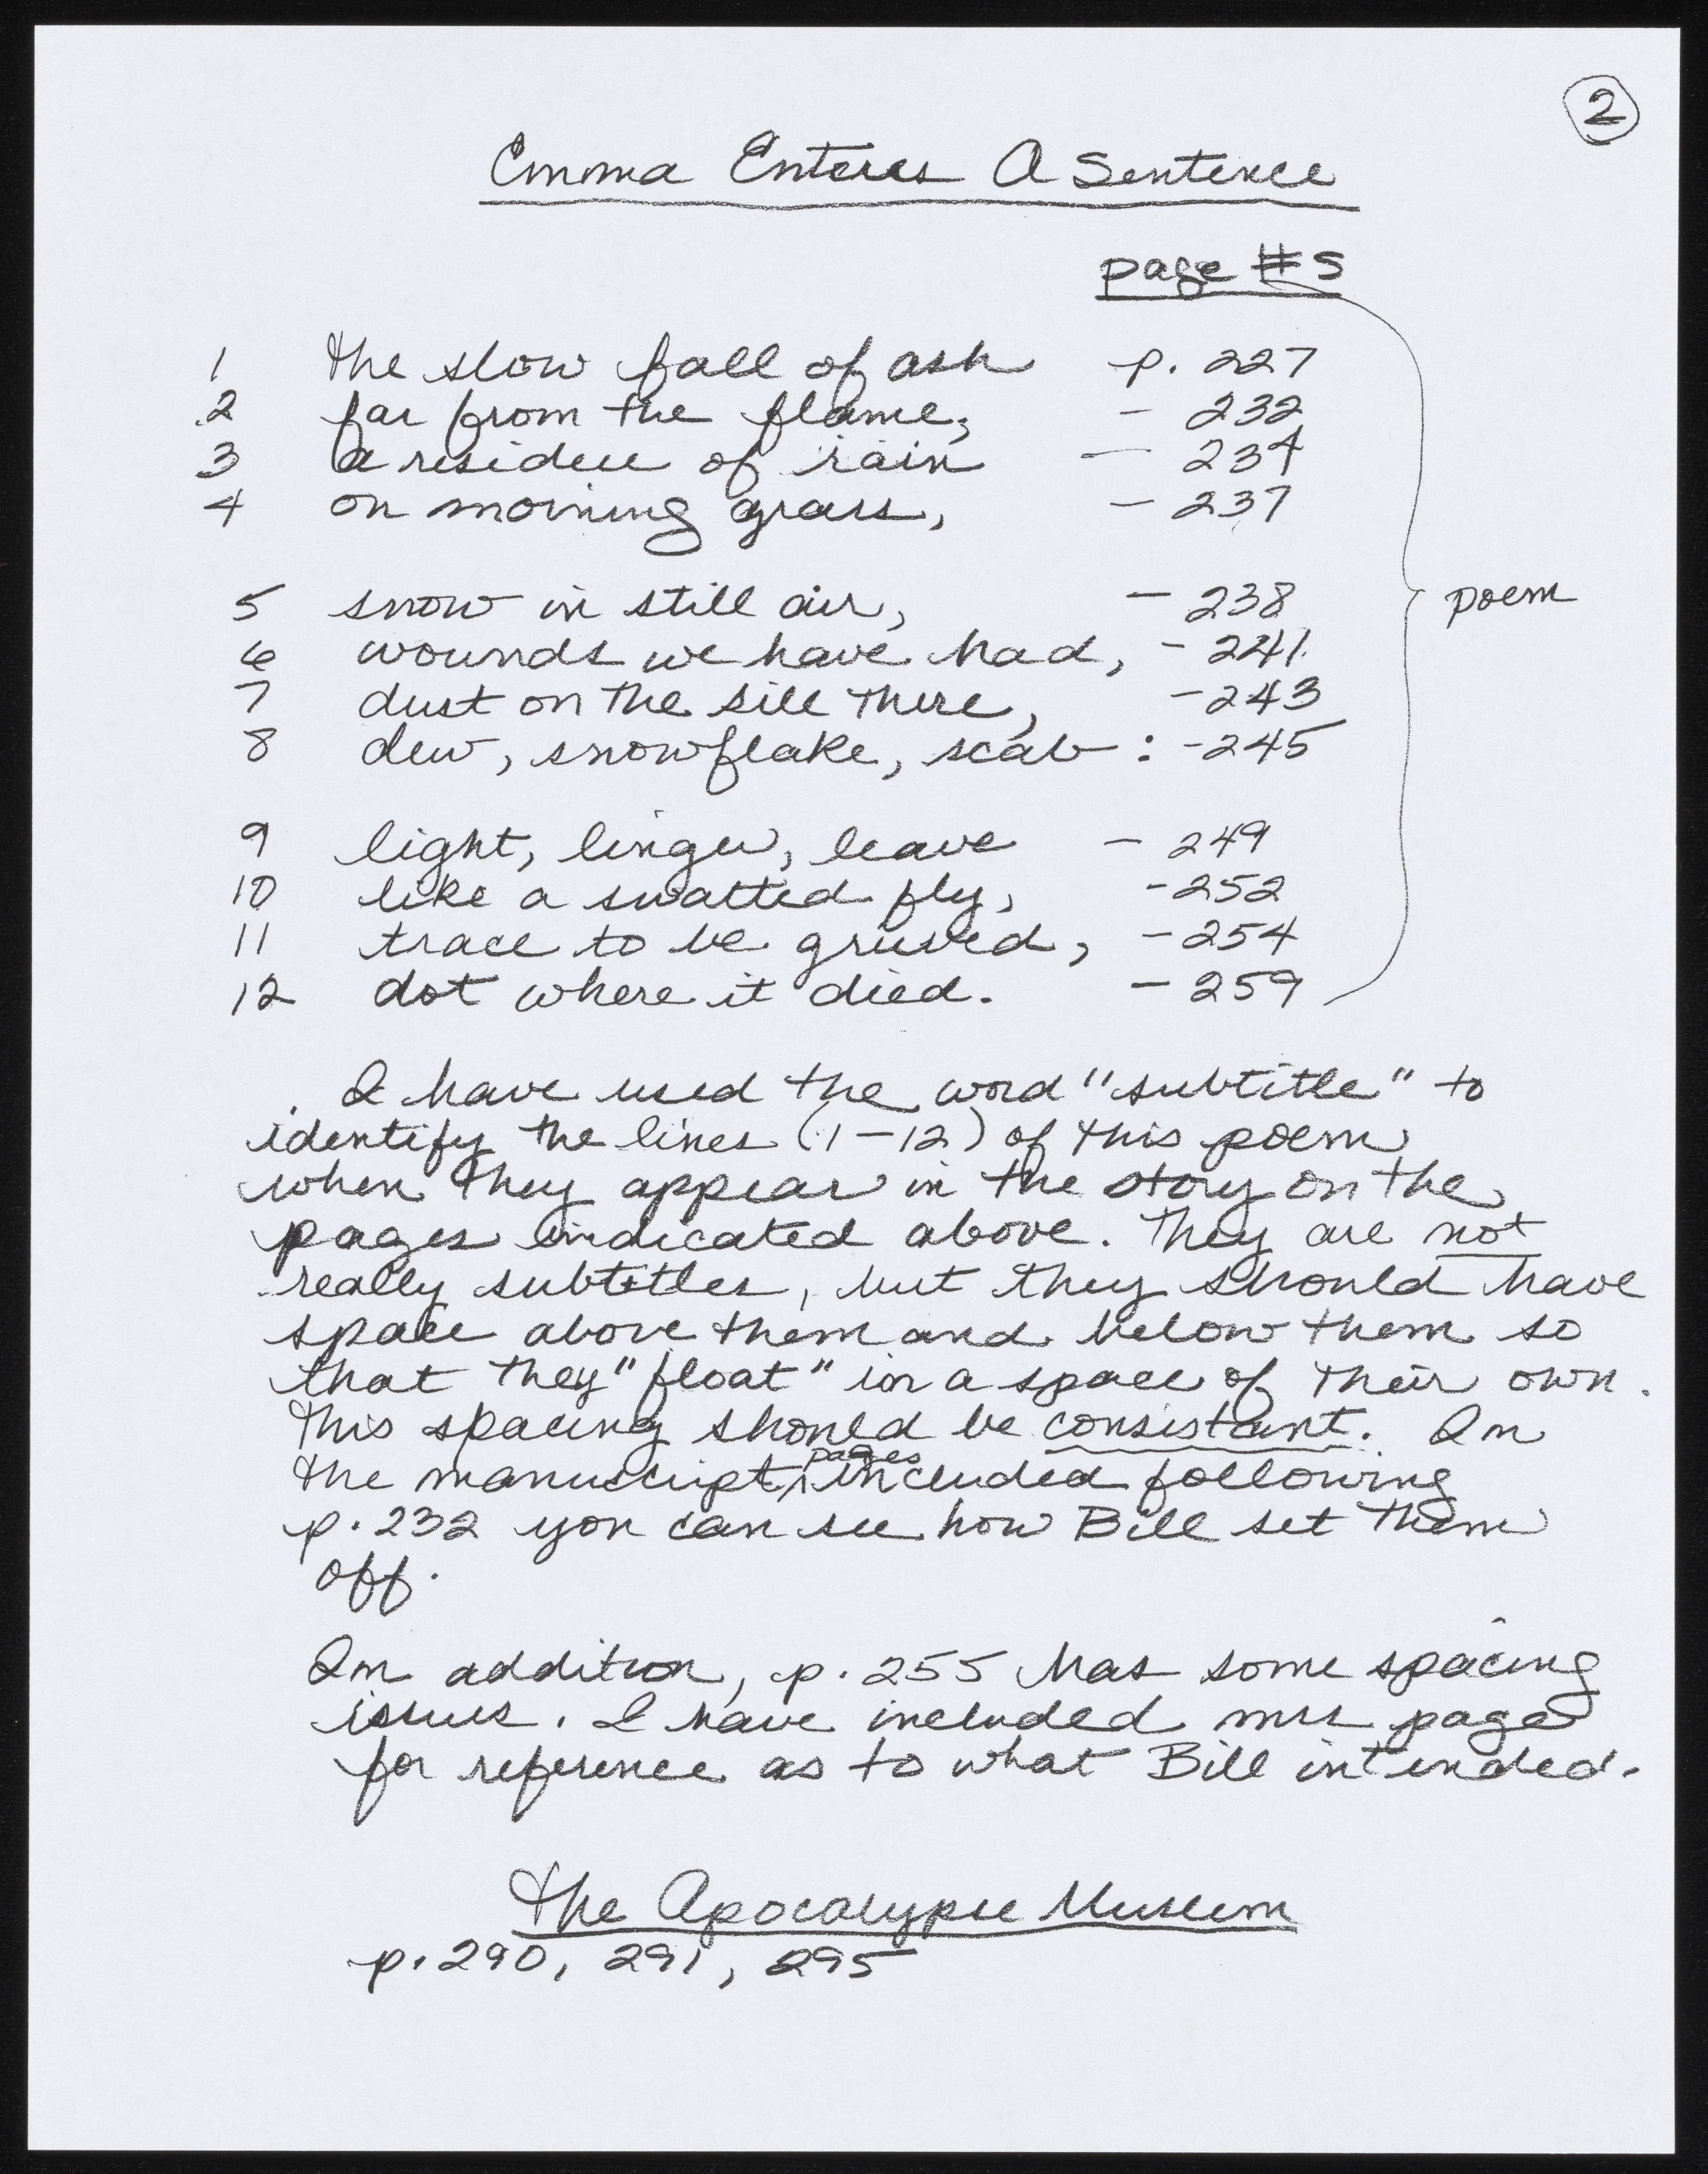 2
Emma Enters A Sentence
page #s
1 the slow fall of ash p. 227
2 far from the flame, - 232
3 a residue of rain - 234
4 on morning grass, - 237
5 snow in still air, - 238
poem
6 wounds we have had, - 241
7 dust on the sill there, - 243
8 dew, snowflake, scab : - 245
9 light, linger, leave - 249
10 like a swatted fly, - 252
11 trace to be grieved, - 254
12 dot where it died. - 259
I have used the word "subtitle" to
identify the lines (1-12) of this poem
when they appear in the story on the
pages indicated above. They are not
really subtitles, but they should have
space above them and below them so
that they "float" in a space of their own.
This spacing should be consistant. In
the manuscript pages included following
p. 232 you can see how Bill set them
off.
In addition, p. 255 has some spacing
issues. I have included mss page
for reference as to what Bill intended.
The Apocalypse Museum
p. 290, 291, 295